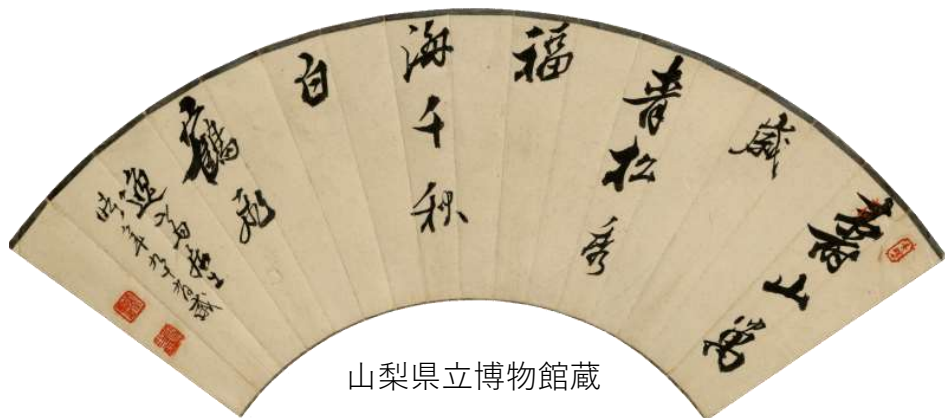 壽山萬
歳
青松秀
福
海千秋
白
鶴飛
時年九十
山梨県立博物館蔵